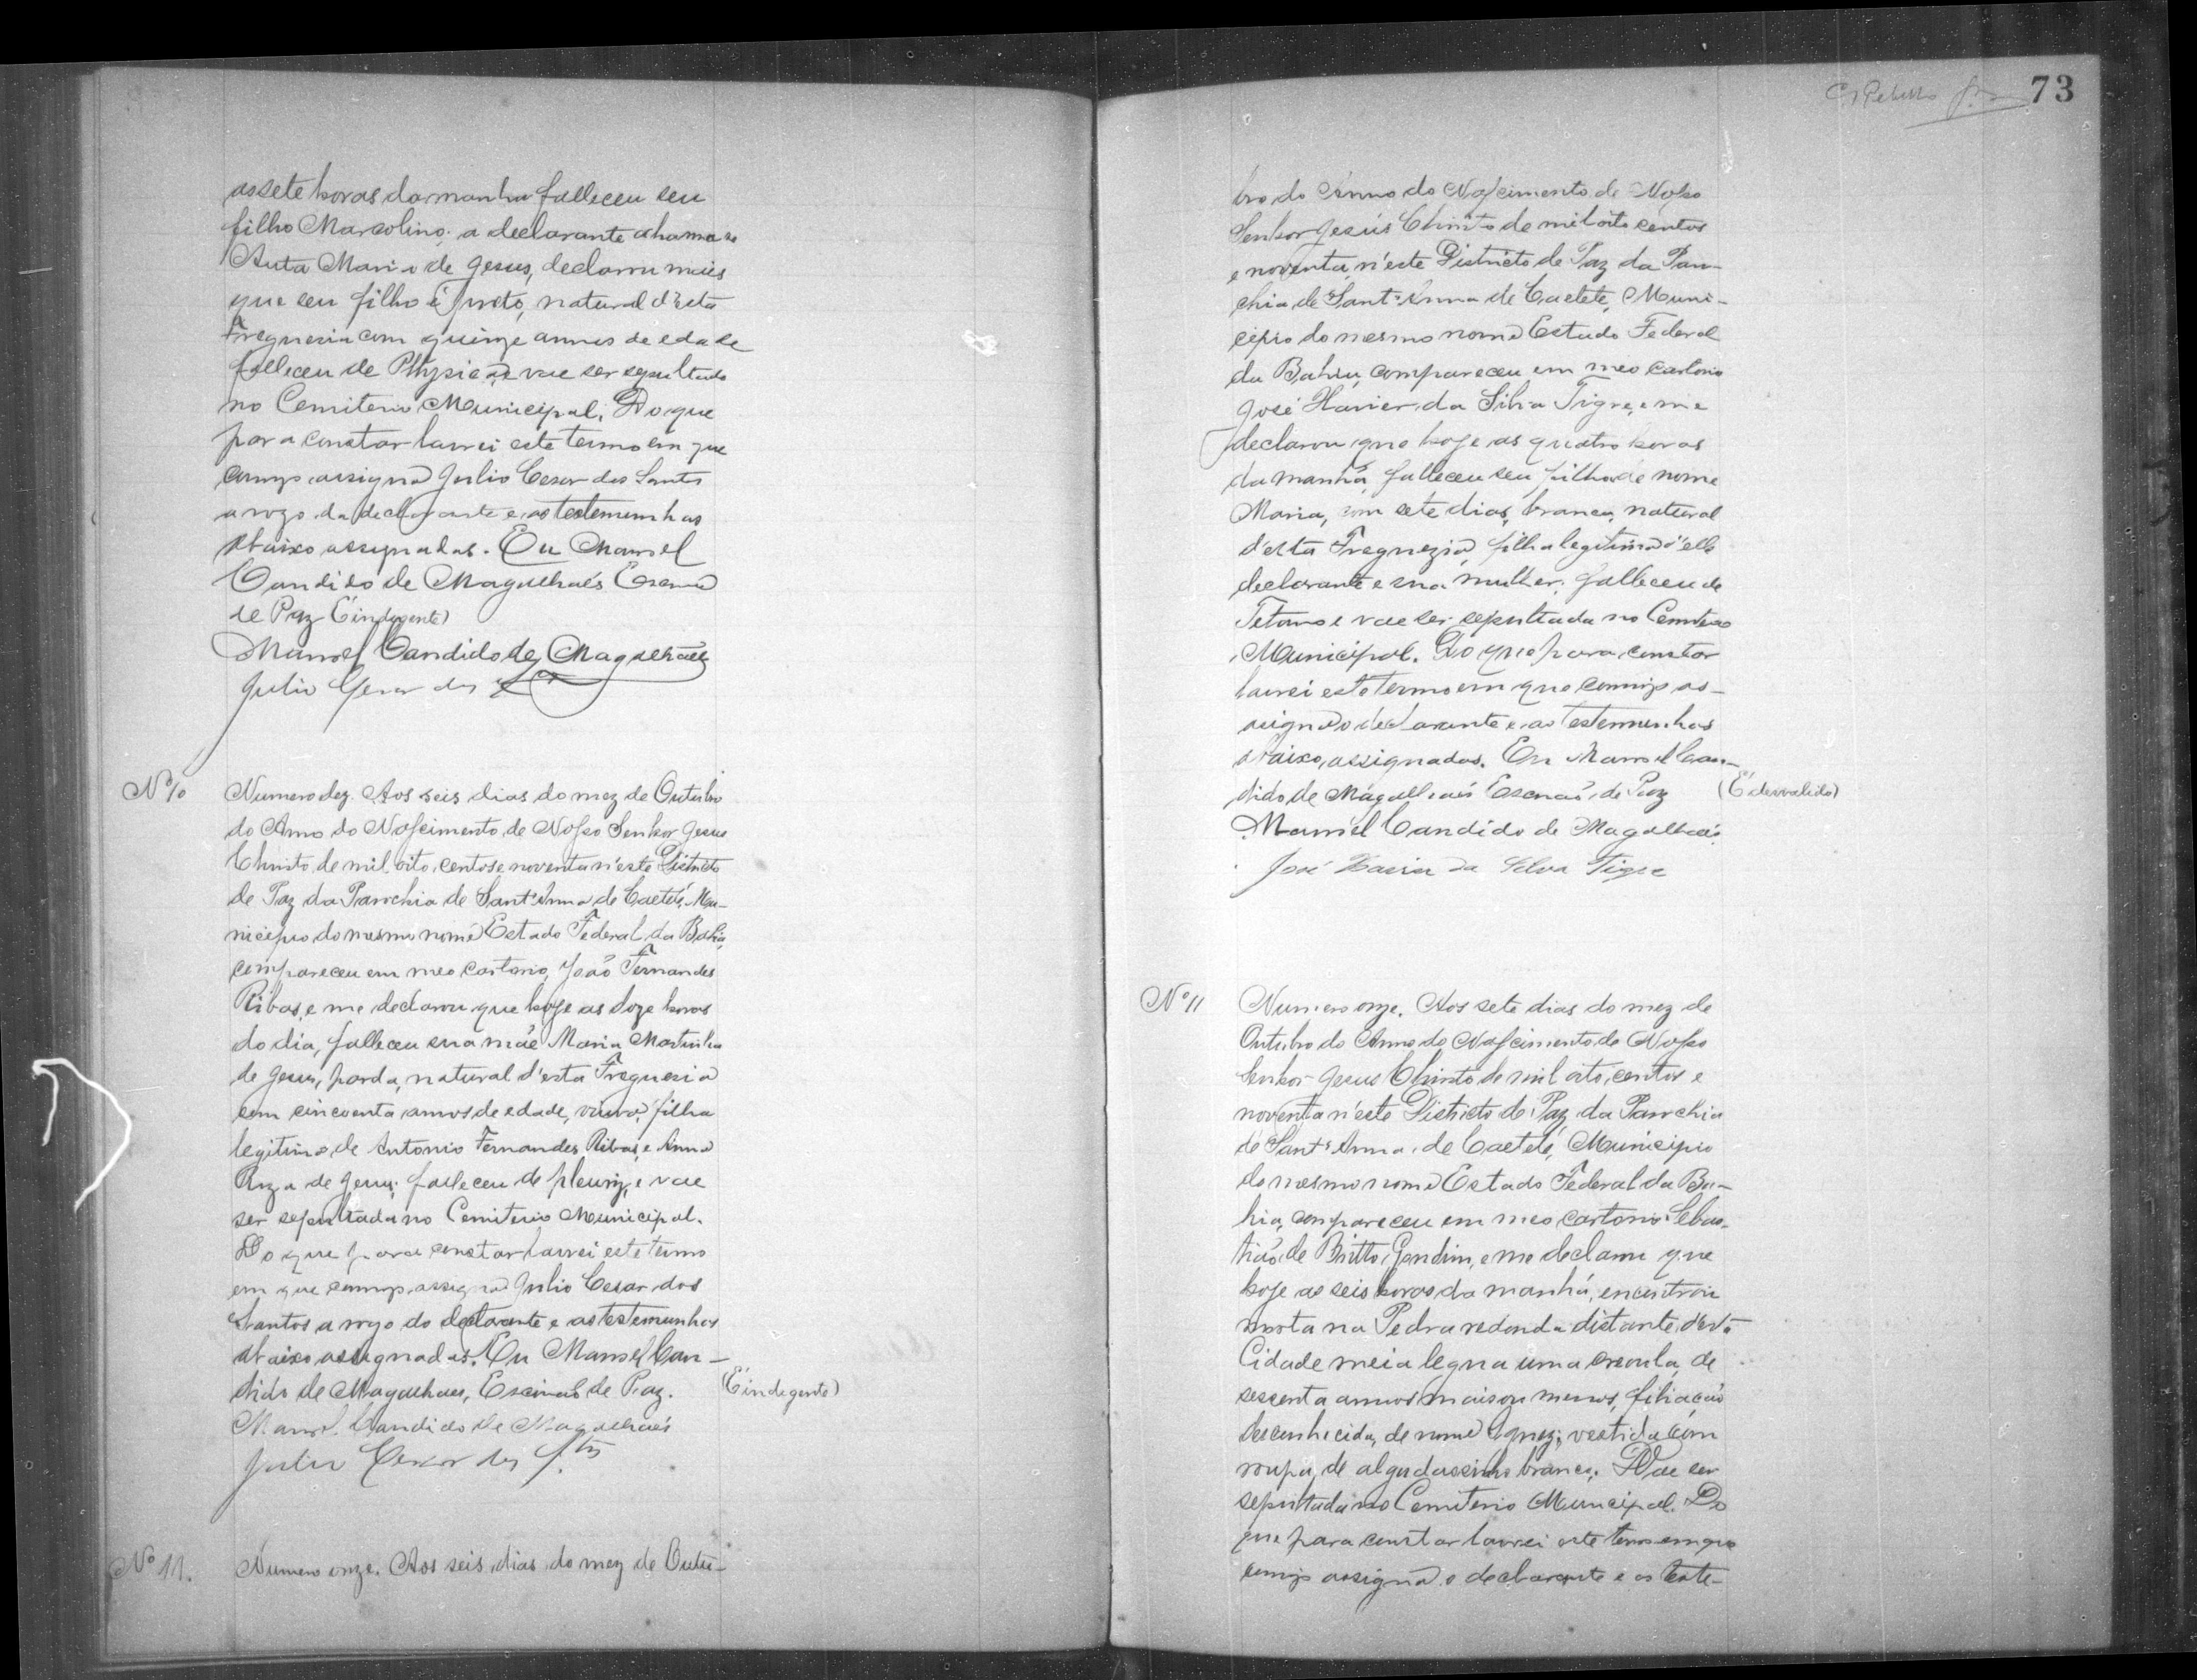 as sete horas da manha falleceu seu
filho Marcolino; a declarante chama-se
Auta Maria de Jesus, declarou mais
que seu filho é preto, natural d'esta
Freguesia com quinze annos de edade
falleceu de Phtysica e vae ser sepultado
no Cemiterio Municipal. Do que
para constar lavrei este termo em que
comigo assigna Julio Cesar dos Santos
a rogo da declarante e as testemunhas
abaixo assignadas. Eu Manoel
Candido de Magalhaés Escrivaõ
de Paz (É indegente)
Manoel Candido de Magalhães
Julio Cesar dos
Nº 10
Numero dez. Aos seis dias do mez de Outubro
do Anno do Nascimento de Nosso Senhor Jesus
Christo de mil oito centos e noventa n'este Districto
de Paz da Parochia de Sant'Anna de Caeteté, Mu-
nicipio do mesmo nome Estado Federal da Bahia,
compareceu em meo cartorio, Joaõ Fernandes
Ribas, e me declarou que hoje as doze horas
do dia, falleceu sua mãe Maria Martinha
de Jesus, parda, natural d'esta Freguesia
com cincoenta annos de edade, viuva, filha
legitima de Antonio Fernandes Ribas, e Anna
Roza de Jesus; falleceu de pleuriz, e vae
ser sepultada no Cemiterio Municipal.
Do que para constar lavrei este termo
em que comigo assigna Julio Cesar dos
Santos a rogo do declarante e as testemunhas
abaixo assignadas. Eu Manoel Can-
dido de Magalhaes, Escrivaõ de Paz. (É indegente)
Manoel Candido de Magalhaés
Julio Cesar dos Stos
Nº 11.
Numero onze. Aos seis dias do mez de Outu-
73
bro do Anno do Nascimento de Nosso
Senhor Jesús Christo de mil oito centos
e noventa, n'este Districto de Paz da Paro-
chia de Sant'Anna de Caeteté, Muni-
cipio do mesmo nome Estado Federal
da Bahia, compareceu em meo cartorio
José Xavier da Silva Tigre, e me
declarou que hoje as quatro horas
da manhã, falleceu seu filha de nome
Maria, com sete dias, branca, natural
d'esta Freguezia, filha legitima d'elle
declarante e sua mulher; falleceu de
Tetano e vae ser sepultada no Cemiterio
Municipal. Do que para constar
lavrei este termo em que comigo as-
signa o declarante e as testemunhas
abaixo, assignadas. Eu Manoel Can-
dido de Magalhaés Escrivaõ de Paz (É desvalido)
Manoel Candido de Magalhaés
José Xavier da Silva Tigre
Nº 11
Numero onze. Aos sete dias do mez de
Outubro do Anno do Nascimento de Nosso
Senhor Jesus Christo de mil oito centos e
noventa n'este Districto de Paz da Parochia
de Sant'Anna de Caeteté, Municipio
do mesmo nome Estado Federal da Ba-
hia, compareceu em meo cartorio Sebas-
tiaõ de Britto Gondim, e me declarou que
hoje as seis horas da manhã, encontrou
morta na Pedra redonda distante d'esta
Cidade meia legua uma creoula, de
sessenta annos mais ou menos, filiaçaõ
desconhecida, de nome Ignez, vestida com
roupa de algudaosinho branco. Vae ser
sepultada no Cemiterio Municipal. Do
que para constar lavrei este termo em que
comigo assigna o declarante e as teste-